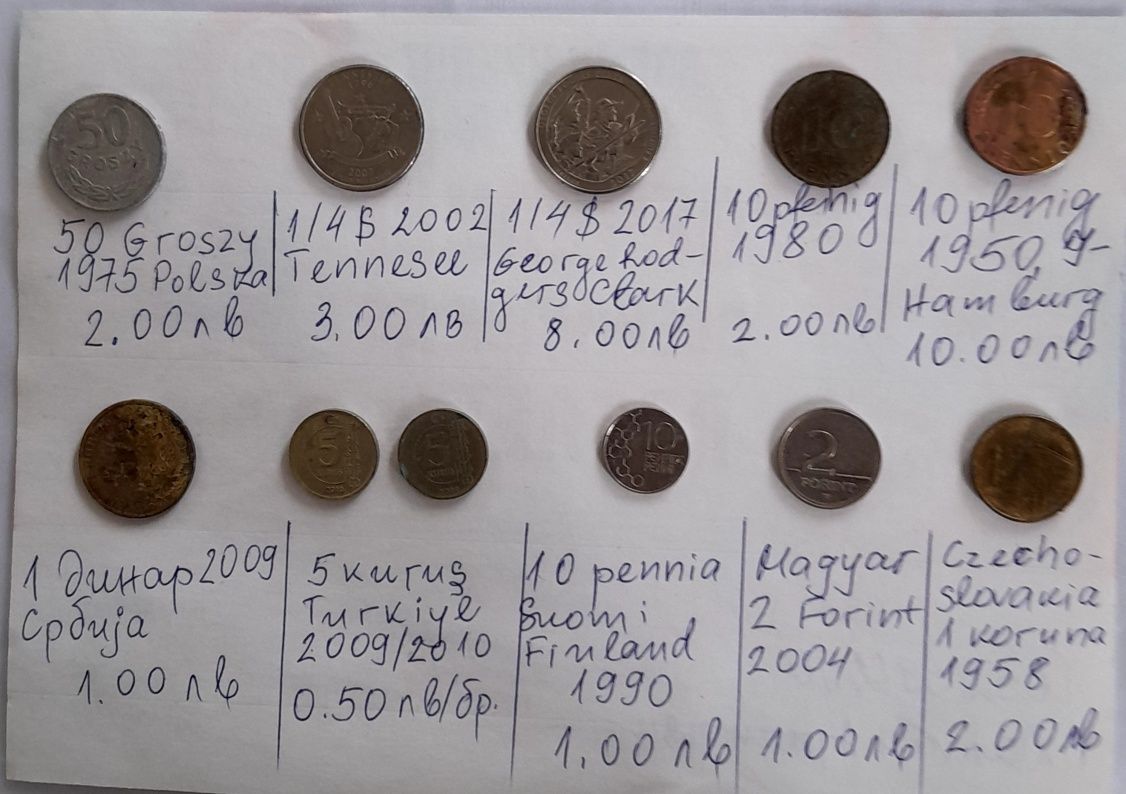 50
GROSZY
2002
10
5
5
10
PENNIÄ
PENNI
2
FORINT
50 Groszy
1975 Polska
2.00лв
1/4 $ 2002
Tennesee
3.00 лв
1/4 $ 2017
George Rod-
gers Clark
8.00лв
10 pfenig
1980
2.00лв
10 pfenig
1950, g-
Hamburg
10.00лв
1 Динар 2009
Србија
1.00 лв
5 kuruş
Turkiye
2009/2010
0.50 лв/бр.
10 pennia
Suomi
Finland
1990
1.00 лв
Magyar
2 Forint
2004
1.00лв
Czecho-
slovakia
1 koruna
1958
2.00лв